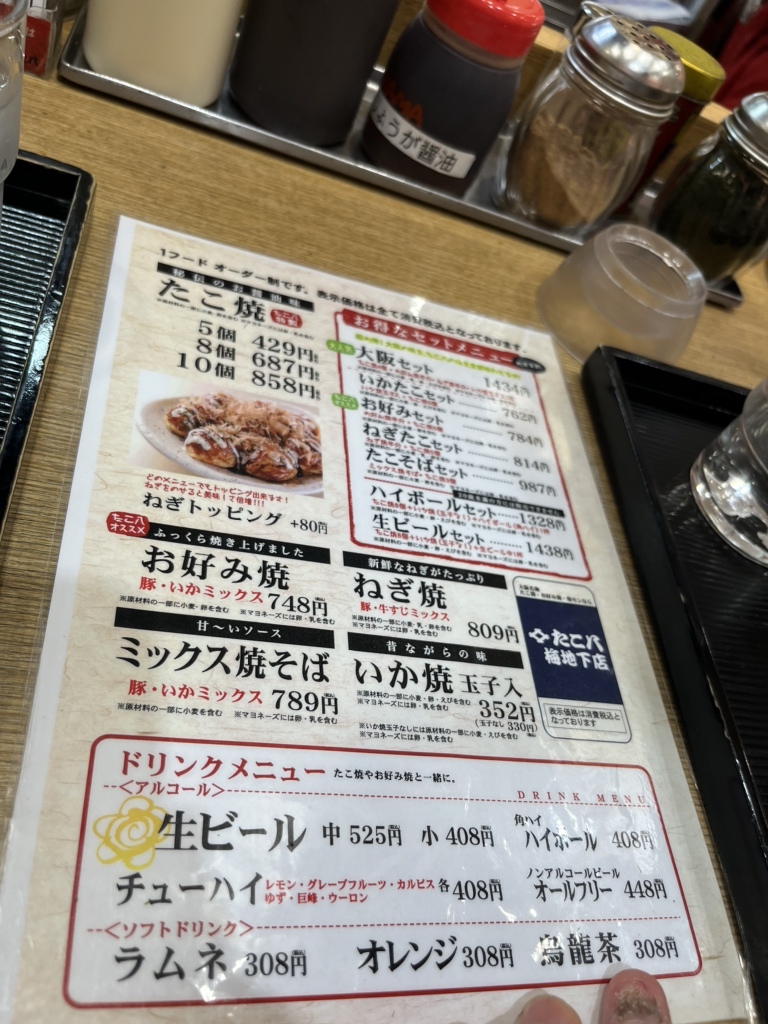 ょうが醤油
1フード オーダー制です。表示価格は全て消費税込となっております。
秘伝のお醤油味
たこ焼
たこ八
特製
5個 429円
8個 687円
10個 858円
どのメニューでもトッピング出来ます!
ねぎをのせると美味しさ倍増!!!
ねぎトッピング +80円
お得なセットメニュー
大阪セット 1434円
いかたこセット 762円
お好みセット 784円
ねぎたこセット 814円
たこそばセット 987円
ミックス焼そば・たこ焼5個
ハイボールセット 1328円
生ビールセット 1438円
たこ八
オススメ
ふっくら焼き上げました
お好み焼
豚・いかミックス 748円
※原材料の一部に小麦・卵を含む ※マヨネーズには卵・乳を含む
新鮮なねぎがたっぷり
ねぎ焼
豚・牛すじミックス
※原材料の一部に小麦・卵・乳を含む
※マヨネーズには卵・乳を含む
809円
甘〜いソース
ミックス焼そば
豚・いかミックス 789円
※原材料の一部に小麦を含む ※マヨネーズには卵・乳を含む
昔ながらの味
いか焼 玉子入
※原材料の一部に小麦・卵・えびを含む
※マヨネーズには卵・乳を含む
352円
(玉子なし 330円)
※いか焼玉子なしには原材料の一部に小麦・乳・えびを含む
※マヨネーズには卵・乳を含む
たこ八
梅地下店
表示価格は消費税込と
なっております
ドリンクメニュー たこ焼やお好み焼と一緒に。
<アルコール>
DRINK MENU
生ビール 中 525円 小 408円
角ハイ
ハイボール 408円
チューハイ レモン・グレープフルーツ・カルピス
ゆず・巨峰・ウーロン
各408円
ノンアルコールビール
オールフリー 448円
<ソフトドリンク>
ラムネ 308円 オレンジ 308円 烏龍茶 308円